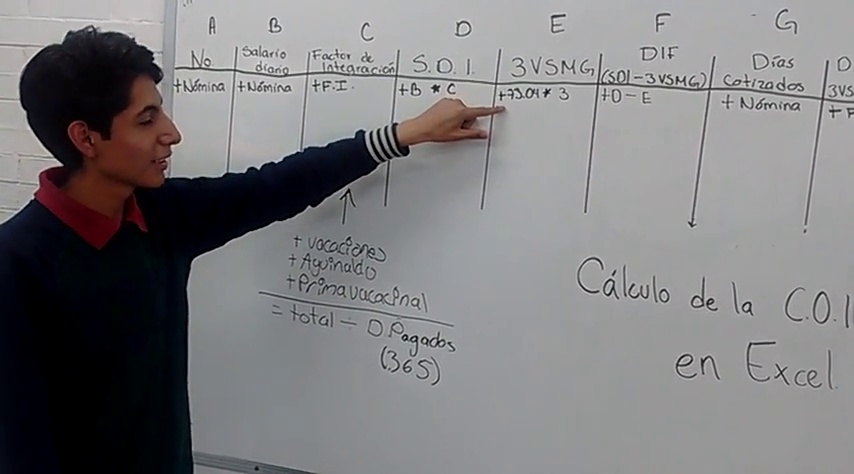 A B C D E F G
No. Salario diario Factor de Integración S.D.I. 3VSMG DIF (SDI-3VSMG) Días Cotizados D 3VS
+Nómina +Nómina +F.I. +B * C +73.04 * 3 +D-E + Nómina + F
+ vacaciones
+ Aguinaldo
+Prima vacacinal
= total ÷ D.Pagados
(365)
Cálculo de la C.O.I
en Excel.